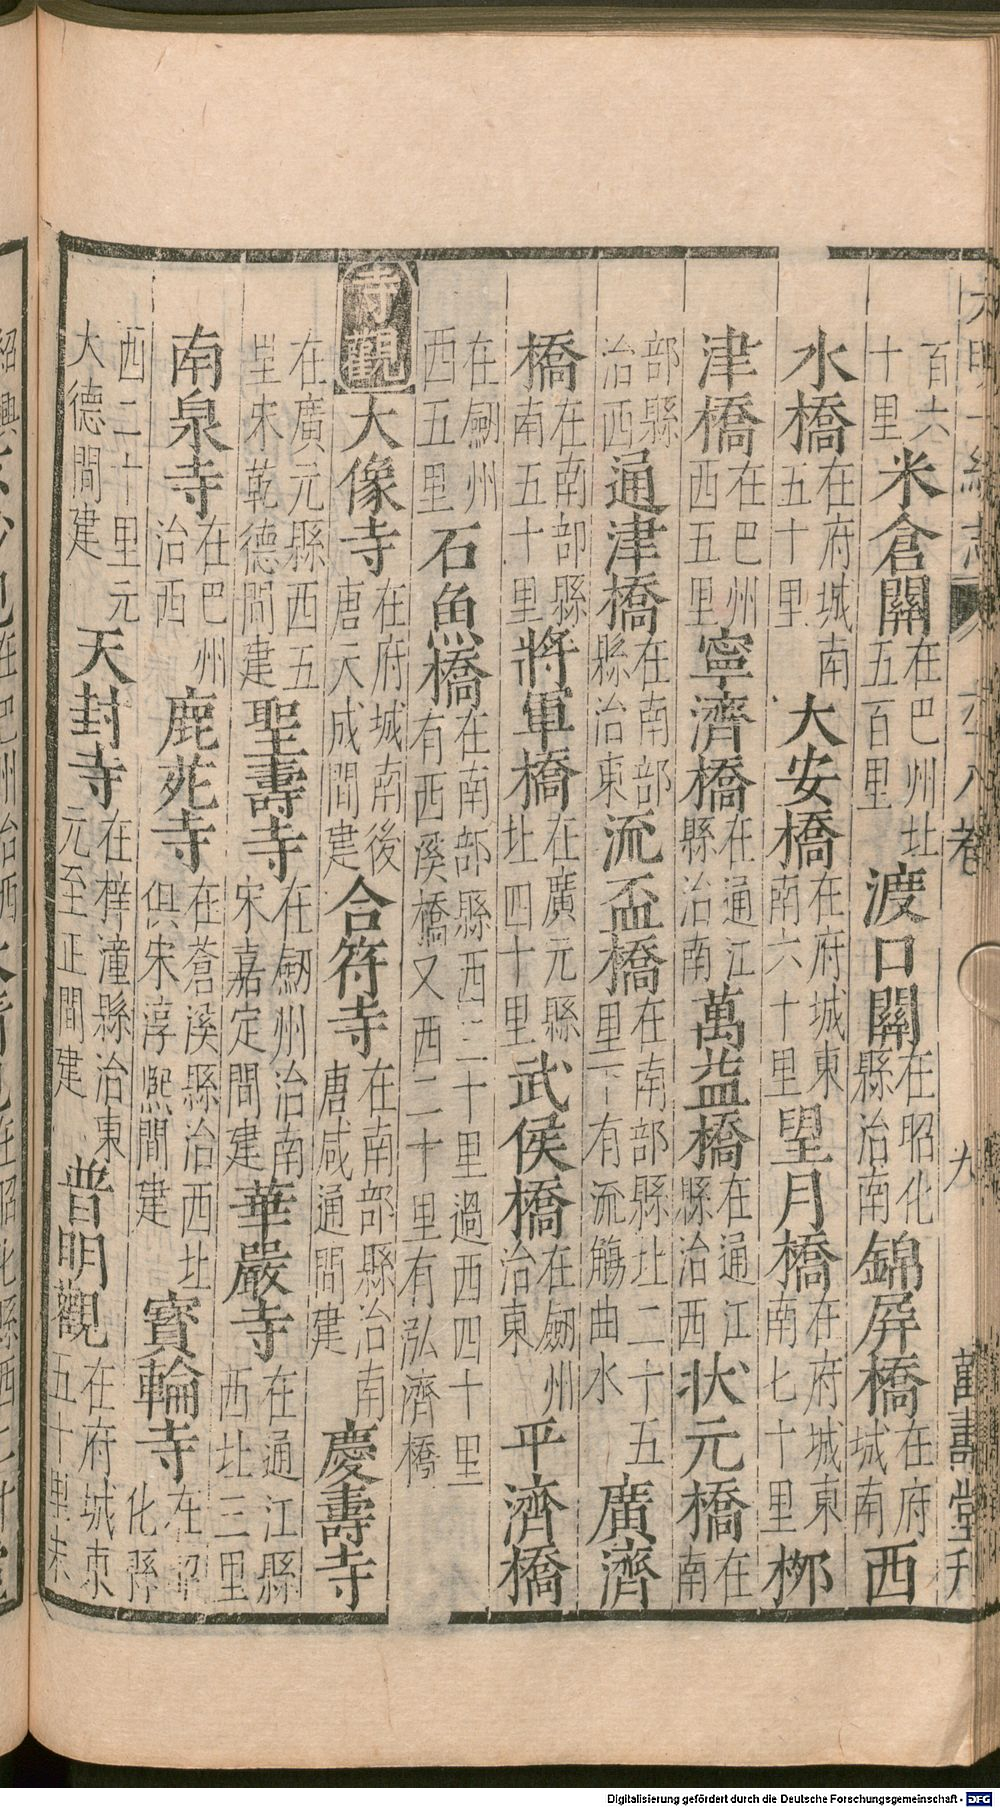 大明一統志 六十八卷 九 萬壽堂刊
百六十里米倉關在巴州北五百里渡口關在昭化縣治南錦屏橋在府城南西
水橋在府城南五十里大安橋在府城東南六十里望月橋在府城東南七十里栁
津橋在巴州西五里寧濟橋在通江縣治南萬益橋在通江縣治西狀元橋在南
部縣治西通津橋在南部縣治東流盃橋在南部縣北二十五里下有流觴曲水廣濟
橋在南部縣南五十里將軍橋在廣元縣北四十里武侯橋在劒州治東平濟橋
在劒州西五里石魚橋在南部縣西三十里過西四十里有西溪橋又西二十里有弘濟橋
寺觀大像寺在府城南後唐天成間建合符寺在南部縣治南唐咸通間建慶壽寺
在廣元縣西五里宋乾德間建聖壽寺在劒州治南宋嘉定間建華嚴寺在通江縣西北三里
南泉寺在巴州治西鹿苑寺在蒼溪縣治西北俱宋淳熙間建寶輪寺在昭化縣
西二十里元大德間建天封寺在梓潼縣治東元至正間建普明觀在府城東五十里宋